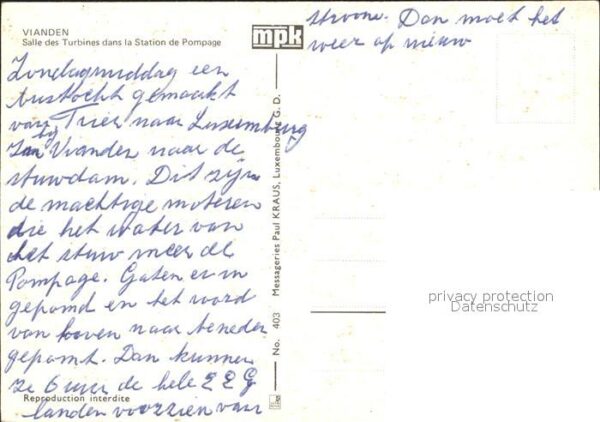 VIANDEN
Salle des Turbines dans la Station de Pompage
mpk
Zondagmiddag een
bustocht gemaakt
van Trier naar Luxemburg
bij
In Vianden naar de
stuwdam. Dit zijn
de machtige motoren
die het water van
het stuw meer de
Pompage. Gaten er in
gepomd en het word
van boven naar beneden
gepomt. Dan kunnen
ze 6 uur de hele EEG
landen voorzien van
stroom. Dan moet het
weer op nieuw
No. 403 Messageries Paul KRAUS, Luxembourg G. D.
Reproduction interdite
privacy protection
Datenschutz